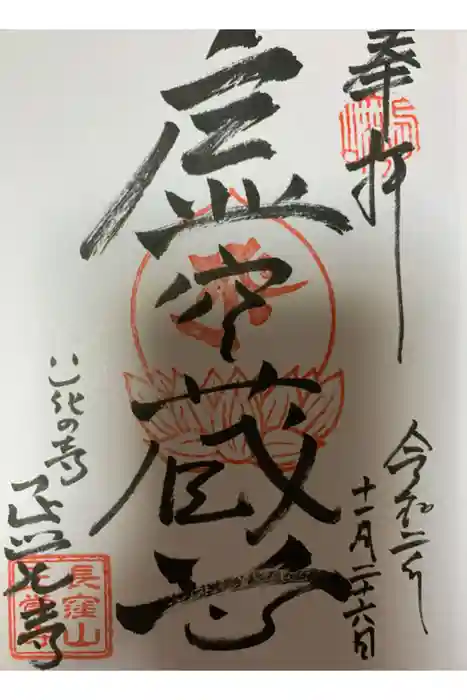 奉拝
令和二年
十一月二十六日
虚空蔵尊
花の寺
正覚寺
長窪山